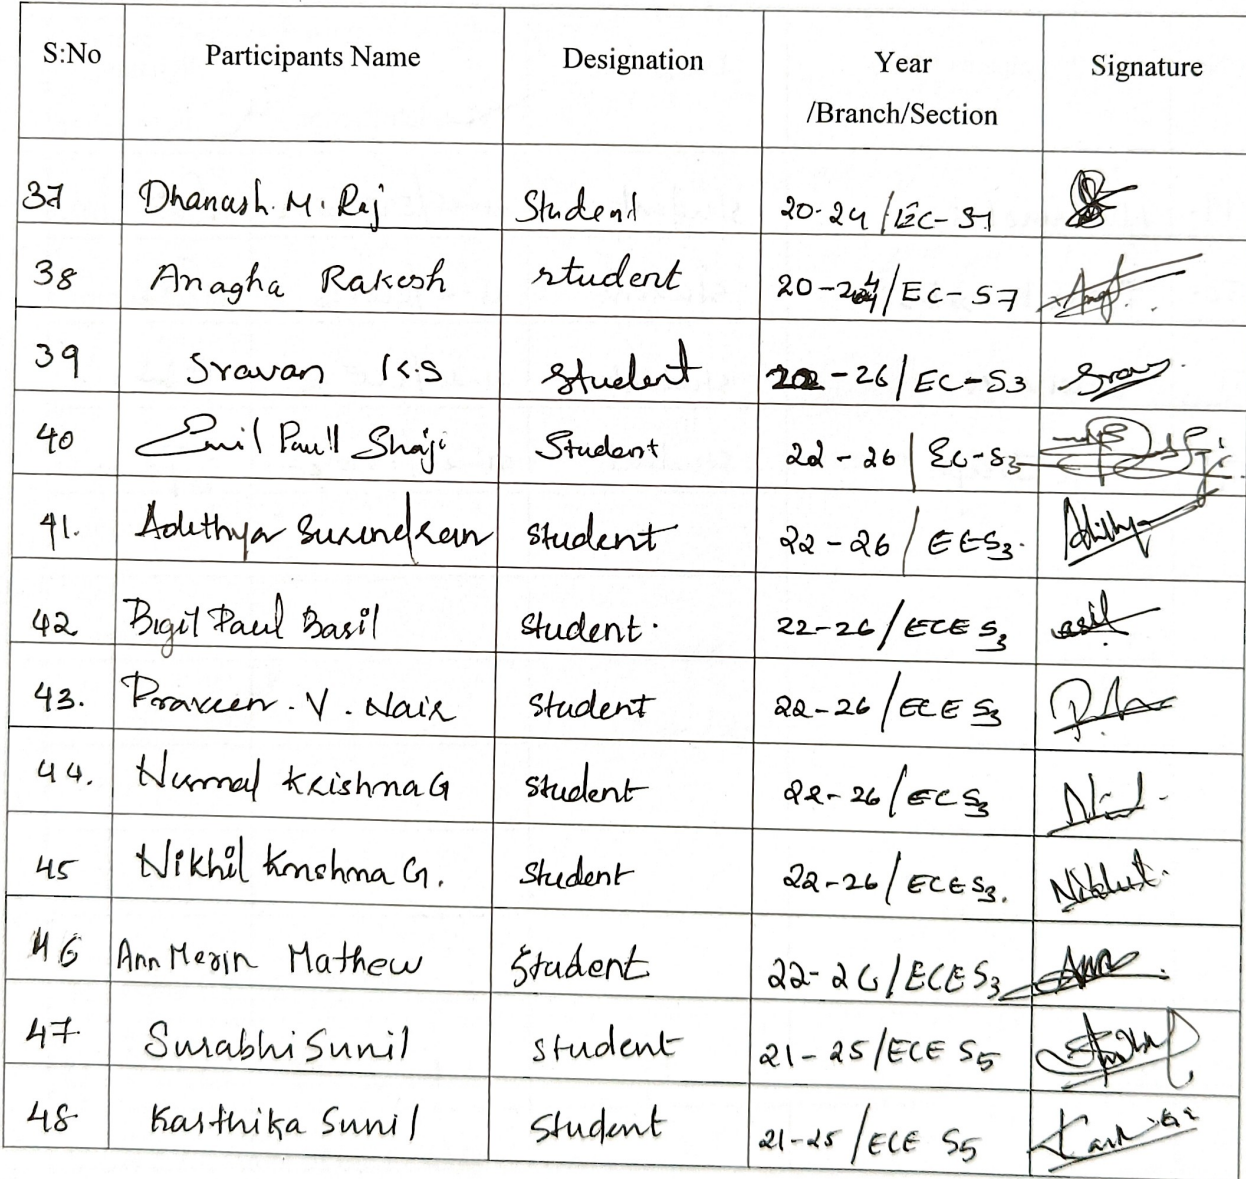 S:No Participants Name Designation Year /Branch/Section Signature
37 Dhanush. M. Raj Student 20-24 / EC-S7
38 Anagha Rakesh student 20-24/EC-S7
39 Sravan K.S Student 22-26/EC-S3 Srav
40 Emil Paull Shaji Student 22-26/EC-S3
41. Adithya Surendran student 22-26/EES3. Adithya
42 Bigil Paul Basil student. 22-26/ECE S3
43. Praveen. V. Nair Student 22-26/ECE S3
44. Nirmal Krishna G Student 22-26/EC S3
45 Nikhil Krishna G. Student 22-26/ECE S3. Nikhil
46 Ann Merin Mathew Student 22-26/ECE S3 Ann
47 Surabhi Sunil Student 21-25/ECE S5
48 Karthika Sunil Student 21-25/ECE S5